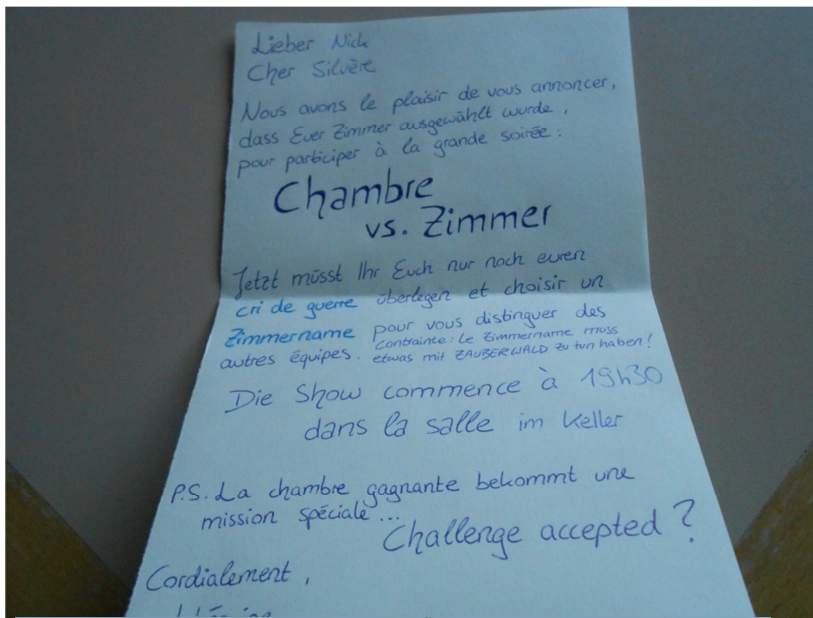 Lieber Nick
Cher Silvère
Nous avons le plaisir de vous annoncer,
dass Euer Zimmer ausgewählt wurde,
pour participer à la grande soirée:
Chambre
vs. Zimmer
Jetzt müsst Ihr Euch nur noch euren
cri de guerre überlegen et choisir un
Zimmername pour vous distinguer des
autres équipes. Contrainte: Le Zimmername muss
etwas mit ZAUBERWALD zu tun haben!
Die Show commence à 19h30
dans la salle im Keller
P.S. La chambre gagnante bekommt une
mission spéciale...
Challenge accepted?
Cordialement,